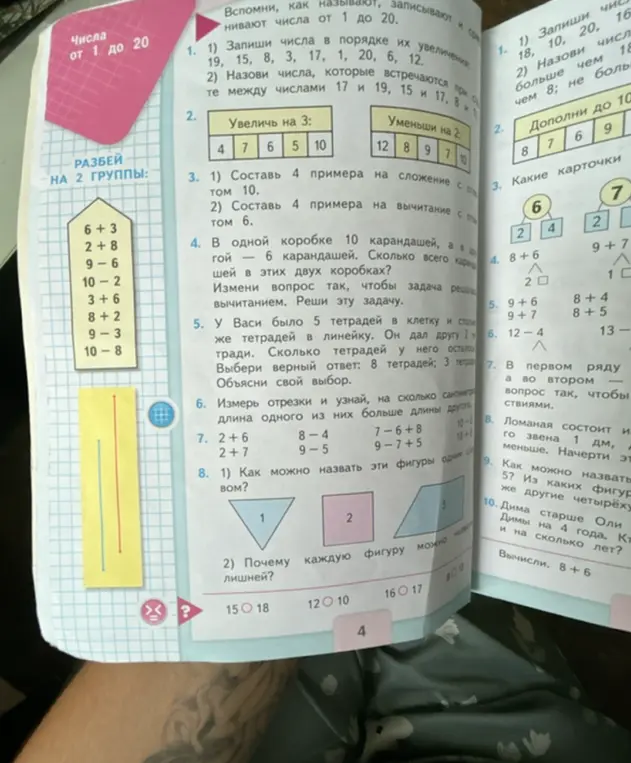 Числа
от 1 до 20
Вспомни, как называют, записывают и
нивают числа от 1 до 20.
1. 1) Запиши числа в порядке их увеличения:
19, 15, 8, 3, 17, 1, 20, 6, 12.
2) Назови числа, которые встречаются при
те между числами 17 и 19, 15 и 17, 8 и
2.
Увеличь на 3:
4 7 6 5 10
Уменьши на 2:
12 8 9 7 10
РАЗБЕЙ
НА 2 ГРУППЫ:
6 + 3
2 + 8
9 − 6
10 − 2
3 + 6
8 + 2
9 − 3
10 − 8
3. 1) Составь 4 примера на сложение с
том 10.
2) Составь 4 примера на вычитание с
том 6.
4. В одной коробке 10 карандашей, а в
гой — 6 карандашей. Сколько всего
шей в этих двух коробках?
Измени вопрос так, чтобы задача
вычитанием. Реши эту задачу.
5. У Васи было 5 тетрадей в клетку и
же тетрадей в линейку. Он дал другу 3
тради. Сколько тетрадей у него
Выбери верный ответ: 8 тетрадей; 3
Объясни свой выбор.
6. Измерь отрезки и узнай, на сколько
длина одного из них больше длины
7. 2 + 6 8 − 4 7 − 6 + 8
2 + 7 9 − 5 9 − 7 + 5
8. 1) Как можно назвать эти фигуры одним
вом?
1 2 3
2) Почему каждую фигуру можно
лишней?
? 15 ○ 18 12 ○ 10 16 ○ 17
4
1. 1) Запиши
18, 10, 20, 16
2) Назови
больше чем
чем 8; не
2.
Дополни до 10
8 7 6 9
3. Какие карточки
6 7
2 4 2
4. 8 + 6 9 + 7
2 □ 1 □
5. 9 + 6 8 + 4
9 + 7 8 + 5
6. 12 − 4 13 −
7. В первом ряду
а во втором —
вопрос так, чтобы
ствиями.
8. Ломаная состоит
го звена 1 дм,
меньше. Начерти
9. Как можно назвать
5? Из каких фигур
же другие
10. Дима старше Оли
Димы на 4 года.
и на сколько лет?
Вычисли. 8 + 6